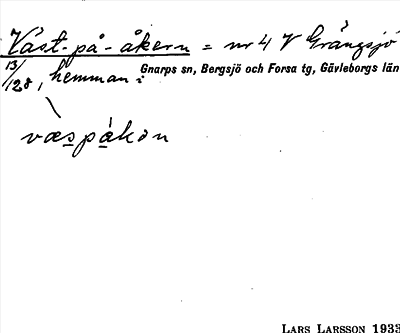 Väst-på-åkern = nr 4 V Grängsjö
13/128, hemman i
Gnarps sn, Bergsjö och Forsa tg, Gävleborgs län
væspåkən
LARS LARSSON 1933